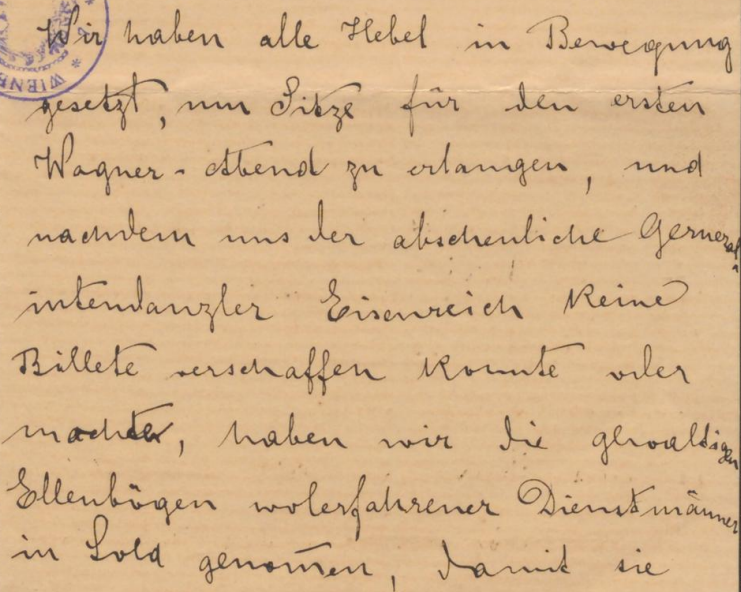 WIENE
Wir haben alle Hebel in Bewegung
gesetzt, um Sitze für den ersten
Wagner-Abend zu erlangen, und
nachdem uns der abscheuliche General-
intendanzler Eisenreich keine
Billete verschaffen konnte oder
mochte, haben wir die gewaltigen
Ellenbögen wolerfahrener Dienstmänner
in Sold genom̄en, damit sie